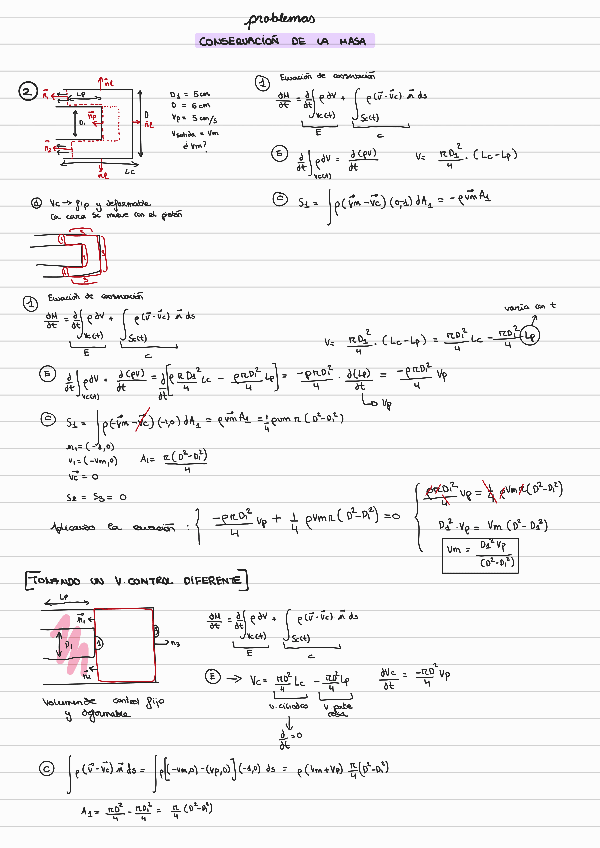 problemas
CONSERVACIÓN DE LA MASA
②
D1 = 5cm
D = 6cm
Vp = 5cm/s
Vsalida = Vm
¿ Vm?
① Ecuación de conservación
∂M/∂t = ∂/∂t ∫Vc(t) ρ dV + ∫Sc(t) ρ(v̄ - v̄c) n̄ ds
E C
Ⓔ ∂/∂t ∫Vc(t) ρdV = ∂(ρV)/∂t V= πD1²/4 · (Lc - Lp)
Ⓒ S1 = ∫ρ(v̄m - v̄c)(0,-1) dA1 = -ρVmA1
Vc → fijo y deformable
La cara S2 mueve con el pistón
① Ecuación de conservación
∂M/∂t = ∂/∂t ∫Vc(t) ρ dV + ∫Sc(t) ρ(v̄ - v̄c) n̄ ds
E C
varía con t
V= πD1²/4 · (Lc - Lp) = πD1²/4 Lc - πD1²/4 Lp
Ⓔ ∂/∂t ∫Vc(t) ρdV = ∂(ρV)/∂t = ∂/∂t [ρπD1²/4 Lc - ρπD1²/4 Lp] = -ρπD1²/4 · ∂(Lp)/∂t = -ρπD1²/4 Vp
↳ Vp
Ⓒ S1 = ∫ρ(-v̄m - v̄c)(-1,0) dA1 = ρVmA1 = 1/4 ρVmπ(D²-D1²)
n1 = (-1,0)
v1 = (-Vm,0) A1 = π(D²-D1²)/4
v̄c = 0
Sl = S3 = 0
Aplicando la ecuación : { -ρπD1²/4 Vp + 1/4 ρVmπ(D²-D1²) = 0
ρπD1²/4 Vp = 1/4 ρVmπ(D²-D1²)
D1² · Vp = Vm (D²-D1²)
Vm = D1² Vp/(D²-D1²)
[TOMANDO UN V.CONTROL DIFERENTE]
Lp
n̄1
D1
n3
Volumen de control fijo
y deformable
∂M/∂t = ∂/∂t ∫Vc(t) ρ dV + ∫Sc(t) ρ(v̄ - v̄c) n̄ ds
E C
Ⓔ → Vc = πD²/4 Lc - πD²/4 Lp ∂Vc/∂t = -πD²/4 Vp
V.cilindro V parte
∂/∂t = 0
Ⓒ ∫ρ(v̄ - v̄c) n̄ ds = ∫ρ[(-Vm,0) - (Vp,0)](-1,0) ds = ρ(Vm+Vp) π/4 (D²-D1²)
A1 = πD²/4 - πD1²/4 = π/4 (D²-D1²)